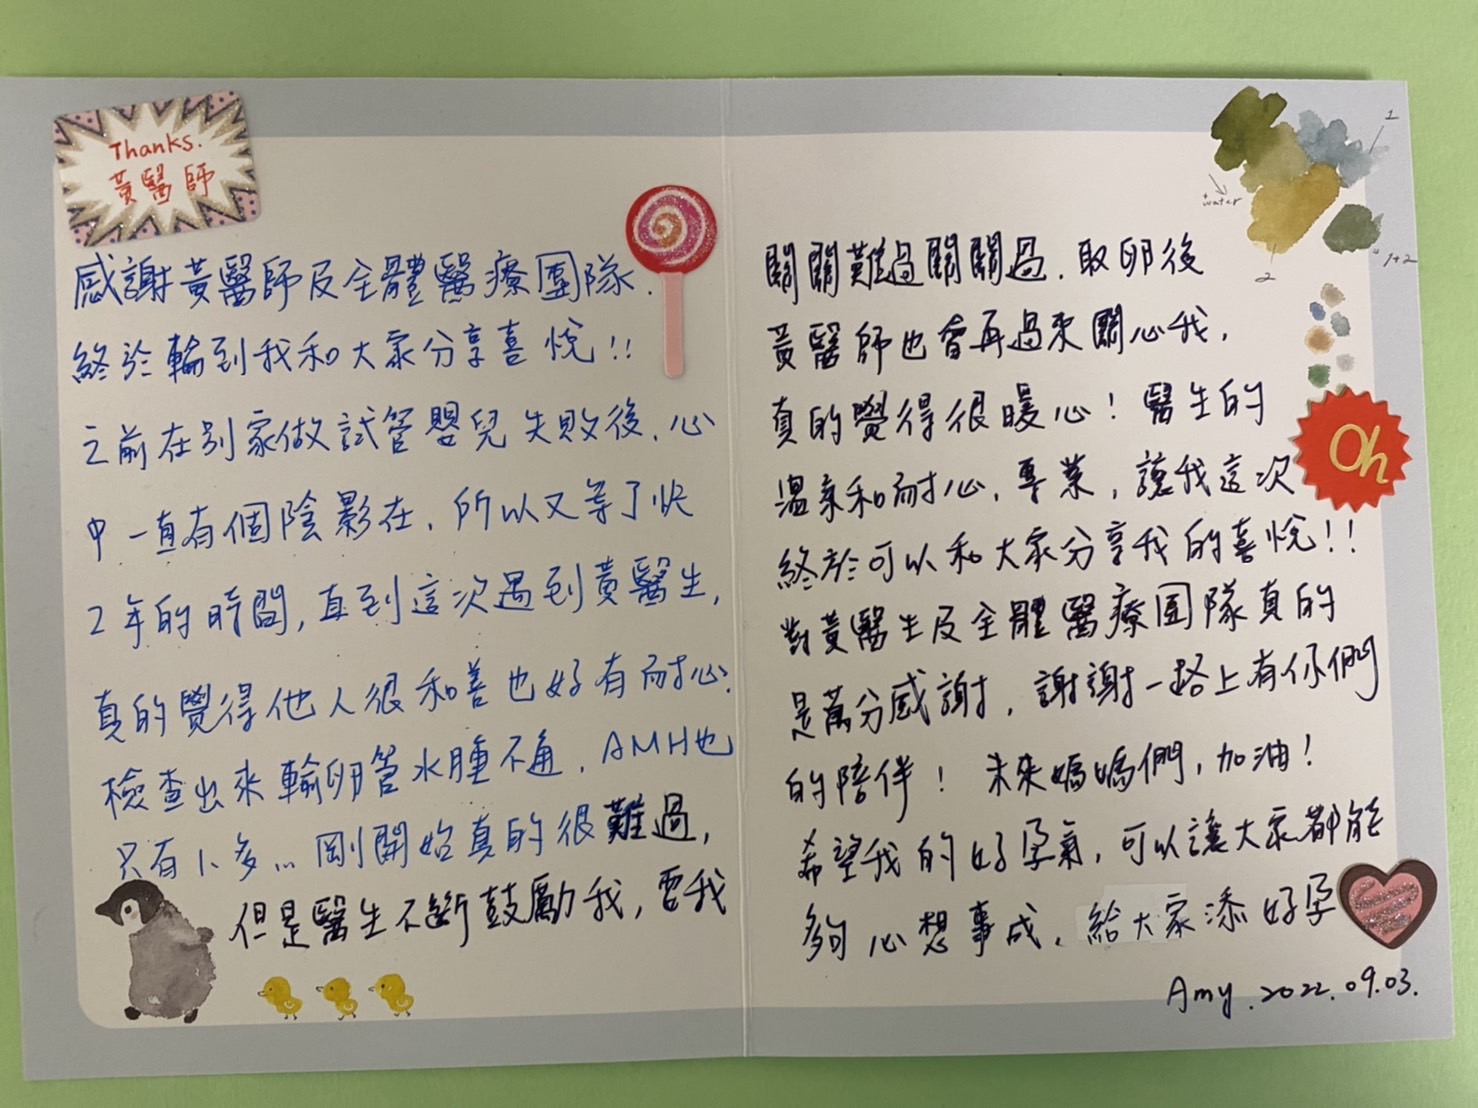 Thanks.
黃醫師
感謝黃醫師及全體醫療團隊.
終於輪到我和大家分享喜悅!!
之前在別家做試管嬰兒失敗後,心
中一直有個陰影在,所以又等了快
2年的時間,直到這次遇到黃醫生,
真的覺得他人很和善也好有耐心.
檢查出來輸卵管水腫不通,AMH也
只有1.多... 剛開始真的很難過,
但是醫生不斷鼓勵我,要我
關關難過關關過.取卵後
黃醫師也會再過來關心我,
真的覺得很暖心!醫生的
溫柔和耐心,專業,讓我這次
終於可以和大家分享我的喜悅!!
對黃醫生及全體醫療團隊真的
是萬分感謝,謝謝一路上有你們
的陪伴!未來媽媽們,加油!
希望我的好孕氣,可以讓大家都能
夠心想事成,給大家添好孕
Amy.2022.09.03.
1
+water
2
1+2
Oh